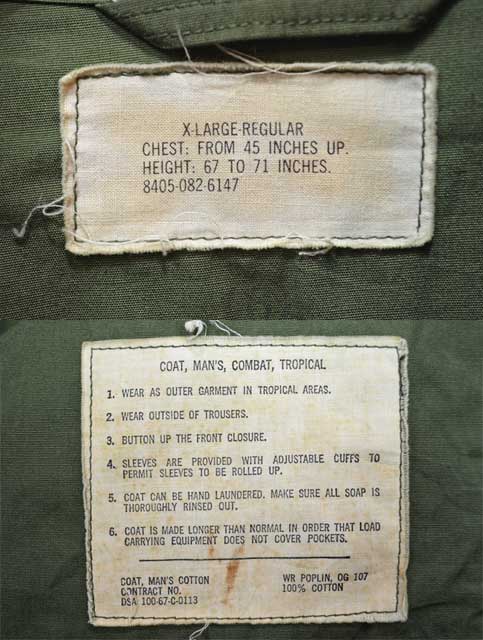 X-LARGE-REGULAR
CHEST: FROM 45 INCHES UP.
HEIGHT: 67 TO 71 INCHES.
8405-082-6147
COAT, MAN'S, COMBAT, TROPICAL
1. WEAR AS OUTER GARMENT IN TROPICAL AREAS.
2. WEAR OUTSIDE OF TROUSERS.
3. BUTTON UP THE FRONT CLOSURE.
4. SLEEVES ARE PROVIDED WITH ADJUSTABLE CUFFS TO
PERMIT SLEEVES TO BE ROLLED UP.
5. COAT CAN BE HAND LAUNDERED. MAKE SURE ALL SOAP IS
THOROUGHLY RINSED OUT.
6. COAT IS MADE LONGER THAN NORMAL IN ORDER THAT LOAD
CARRYING EQUIPMENT DOES NOT COVER POCKETS.
COAT, MAN'S COTTON WR POPLIN, OG 107
CONTRACT NO. 100% COTTON
DSA 100-67-C-0113